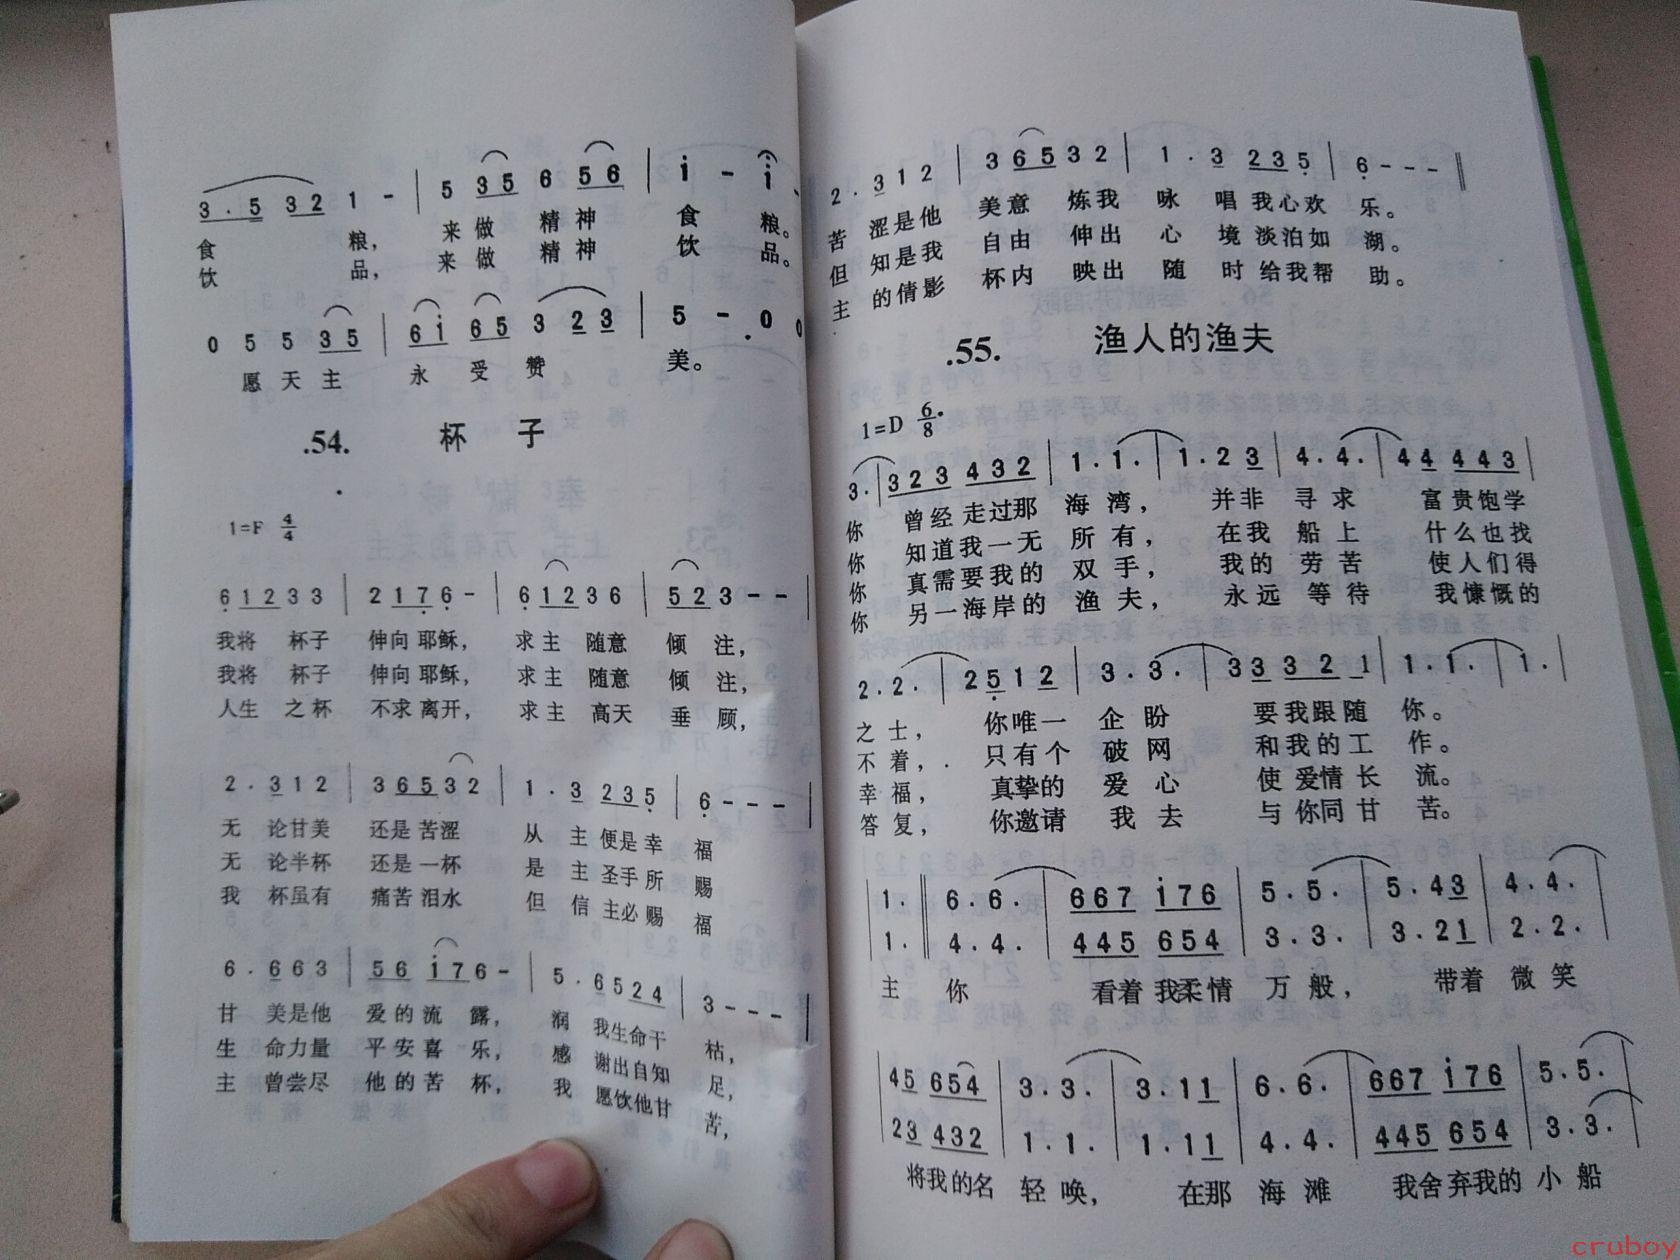 3 . 5 3 2 1 - | 5 3 5 6 5 6 | i - i -
食 粮, 来 做 精 神 食 粮。
饮 品, 来 做 精 神 饮 品。
0 5 5 3 5 | 6 i 6 5 3 2 3 | 5 - 0 0
愿 天 主 永 受 赞 美。
.54. 杯 子
1=F 4/4
6 1 2 3 3 | 2 1 7 6 - | 6 1 2 3 6 | 5 2 3 - - |
我将 杯子 伸向 耶稣, 求主 随意 倾 注,
我将 杯子 伸向 耶稣, 求主 随意 倾 注,
人生 之杯 不求 离开, 求主 高天 垂 顾,
2 . 3 1 2 | 3 6 5 3 2 | 1 . 3 2 3 5 | 6 - - - |
无 论甘美 还是 苦涩 从 主 便是 幸 福
无 论半杯 还是 一杯 是 主 圣手 所 赐
我 杯虽有 痛苦 泪水 但 信 主必 赐 福
6 . 6 6 3 | 5 6 i 7 6 - | 5 . 6 5 2 4 | 3 - - - |
甘 美是他 爱的 流 露, 润 我生命干 枯,
生 命力量 平安 喜 乐, 感 谢出自知 足,
主 曾尝尽 他的 苦 杯, 我 愿饮他甘 苦,
2 . 3 1 2 | 3 6 5 3 2 | 1 . 3 2 3 5 | 6 - - - ‖
苦 涩是他 美意 炼我 咏 唱 我心欢 乐。
但 知是我 自由 伸出 心 境 淡泊如 湖。
主 的倩影 杯内 映出 随 时 给我帮 助。
.55. 渔人的渔夫
1=D 6/8
3 . | 3 2 3 4 3 2 | 1 . 1 . | 1 . 2 3 | 4 . 4 . | 4 4 4 4 3 |
你 曾经走过那 海湾, 并非 寻求 富贵饱学
你 知道我一无 所有, 在我 船上 什么也找
你 真需要我的 双手, 我的 劳苦 使人们得
你 另一海岸的 渔夫, 永远 等待 我慷慨的
2 . 2 . | 2 5 1 2 | 3 . 3 . | 3 3 3 2 1 | 1 . 1 . | 1 . |
之士, 你唯一 企盼 要我跟随 你。
不着, 只有个 破网 和我的工 作。
幸福, 真挚的 爱心 使爱情长 流。
答复, 你邀请 我去 与你同甘 苦。
1 . ‖ 6 . 6 . | 6 6 7 i 7 6 | 5 . 5 . | 5 . 4 3 | 4 . 4 . |
1 . ‖ 4 . 4 . | 4 4 5 6 5 4 | 3 . 3 . | 3 . 2 1 | 2 . 2 . |
主 你 看着我柔情 万般, 带着 微笑
4 5 6 5 4 | 3 . 3 . | 3 . 1 1 | 6 . 6 . | 6 6 7 i 7 6 | 5 . 5 . |
2 3 4 3 2 | 1 . 1 . | 1 . 1 1 | 4 . 4 . | 4 4 5 6 5 4 | 3 . 3 . |
将我的名 轻唤, 在那 海滩 我舍弃我的 小船
cruboy